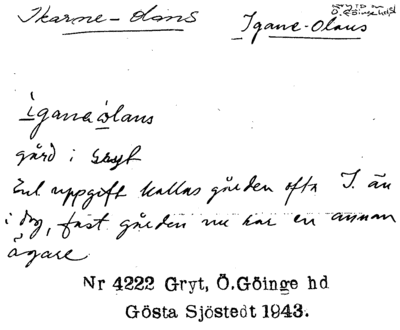 Ikarne-Olans Igane-Olaus
Gryts sn
Ö. Göinge hd
ìganeòlans
gård i Gryt
Enl uppgift kallas gården ofta I. än
i dag, fast gården nu har en annan
ägare
Nr 4222 Gryt, Ö.Göinge hd
Gösta Sjöstedt 1943.